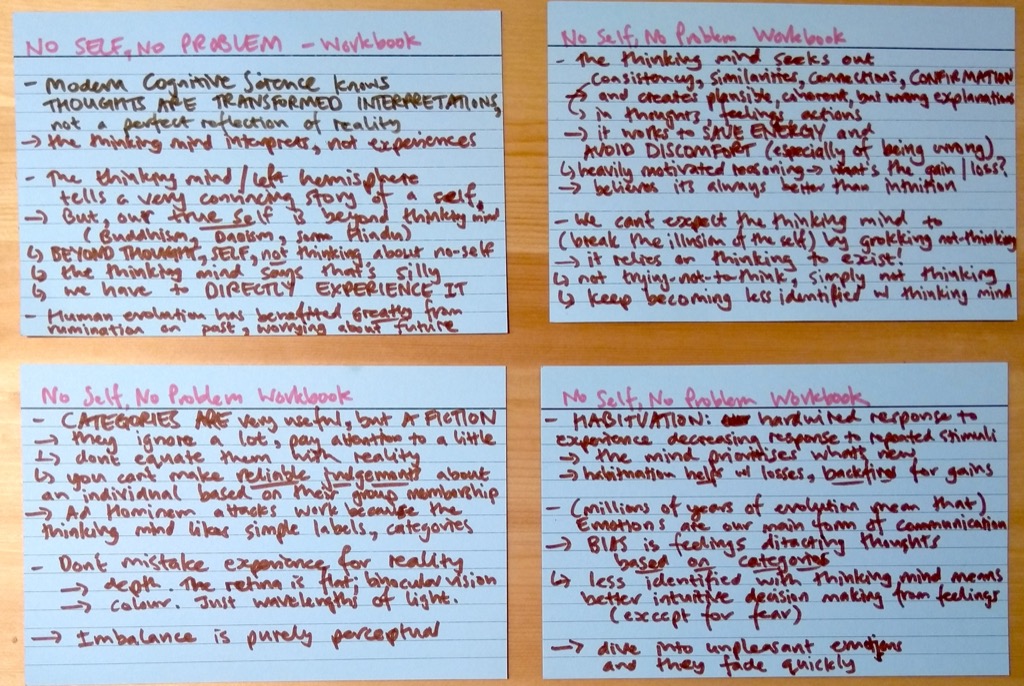 NO SELF, NO PROBLEM - Workbook
- Modern Cognitive Science knows
THOUGHTS ARE TRANSFORMED INTERPRETATIONS,
not a perfect reflection of reality
→ the thinking mind interprets, not experiences
- The thinking mind/left hemisphere
tells a very convincing story of a self.
→ But, our true self is beyond thinking mind
(Buddhism, Daoism, some Hindu)
↳ BEYOND THOUGHT, SELF, not thinking about no-self
↳ the thinking mind says that's silly
↳ we have to DIRECTLY EXPERIENCE IT
- Human evolution has benefited greatly from
rumination on past, worrying about future
No Self, No Problem Workbook
- The thinking mind seeks out
consistency, similarities, connections, CONFIRMATION
→ and creates plausible, coherent, but wrong explanations
↳ in thoughts, feelings actions
→ it works to SAVE ENERGY and
AVOID DISCOMFORT (especially of being wrong)
↳ heavily motivated reasoning → what's the gain/loss?
→ believes its always better than intuition
- We cant expect the thinking mind to
(break the illusion of the self) by grokking not-thinking
→ it relies on thinking to exist!
↳ not trying-not-to-think, simply not thinking
↳ keep becoming less identified w/ thinking mind
No Self, No Problem Workbook
- CATEGORIES ARE very useful, but A FICTION
→ they ignore a lot, pay attention to a little
↳ dont equate them with reality
↳ you cant make reliable judgements about
an individual based on their group membership
→ Ad Hominem attacks work because the
thinking mind likes simple labels, categories
- Dont mistake experience for reality
→ depth. The retina is flat; binocular vision
→ colour. Just wavelengths of light.
→ Imbalance is purely perceptual
No Self, No Problem Workbook
- HABITUATION: hardwired response to
experience decreasing response to repeated stimuli
→ the mind prioritises whats new
→ habituation helps w/ losses, backfires for gains
- (millions of years of evolution mean that)
Emotions are our main form of communication
→ BIAS is feelings dictating thoughts
based on categories
↳ less identified with thinking mind means
better intuitive decision making from feelings
(except for fear)
→ dive into unpleasant emotions
and they fade quickly